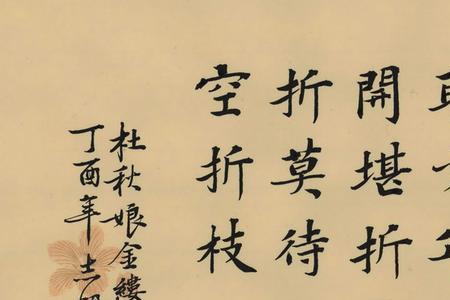 開堪折
折莫待
空折枝
杜秋娘金縷
丁酉年